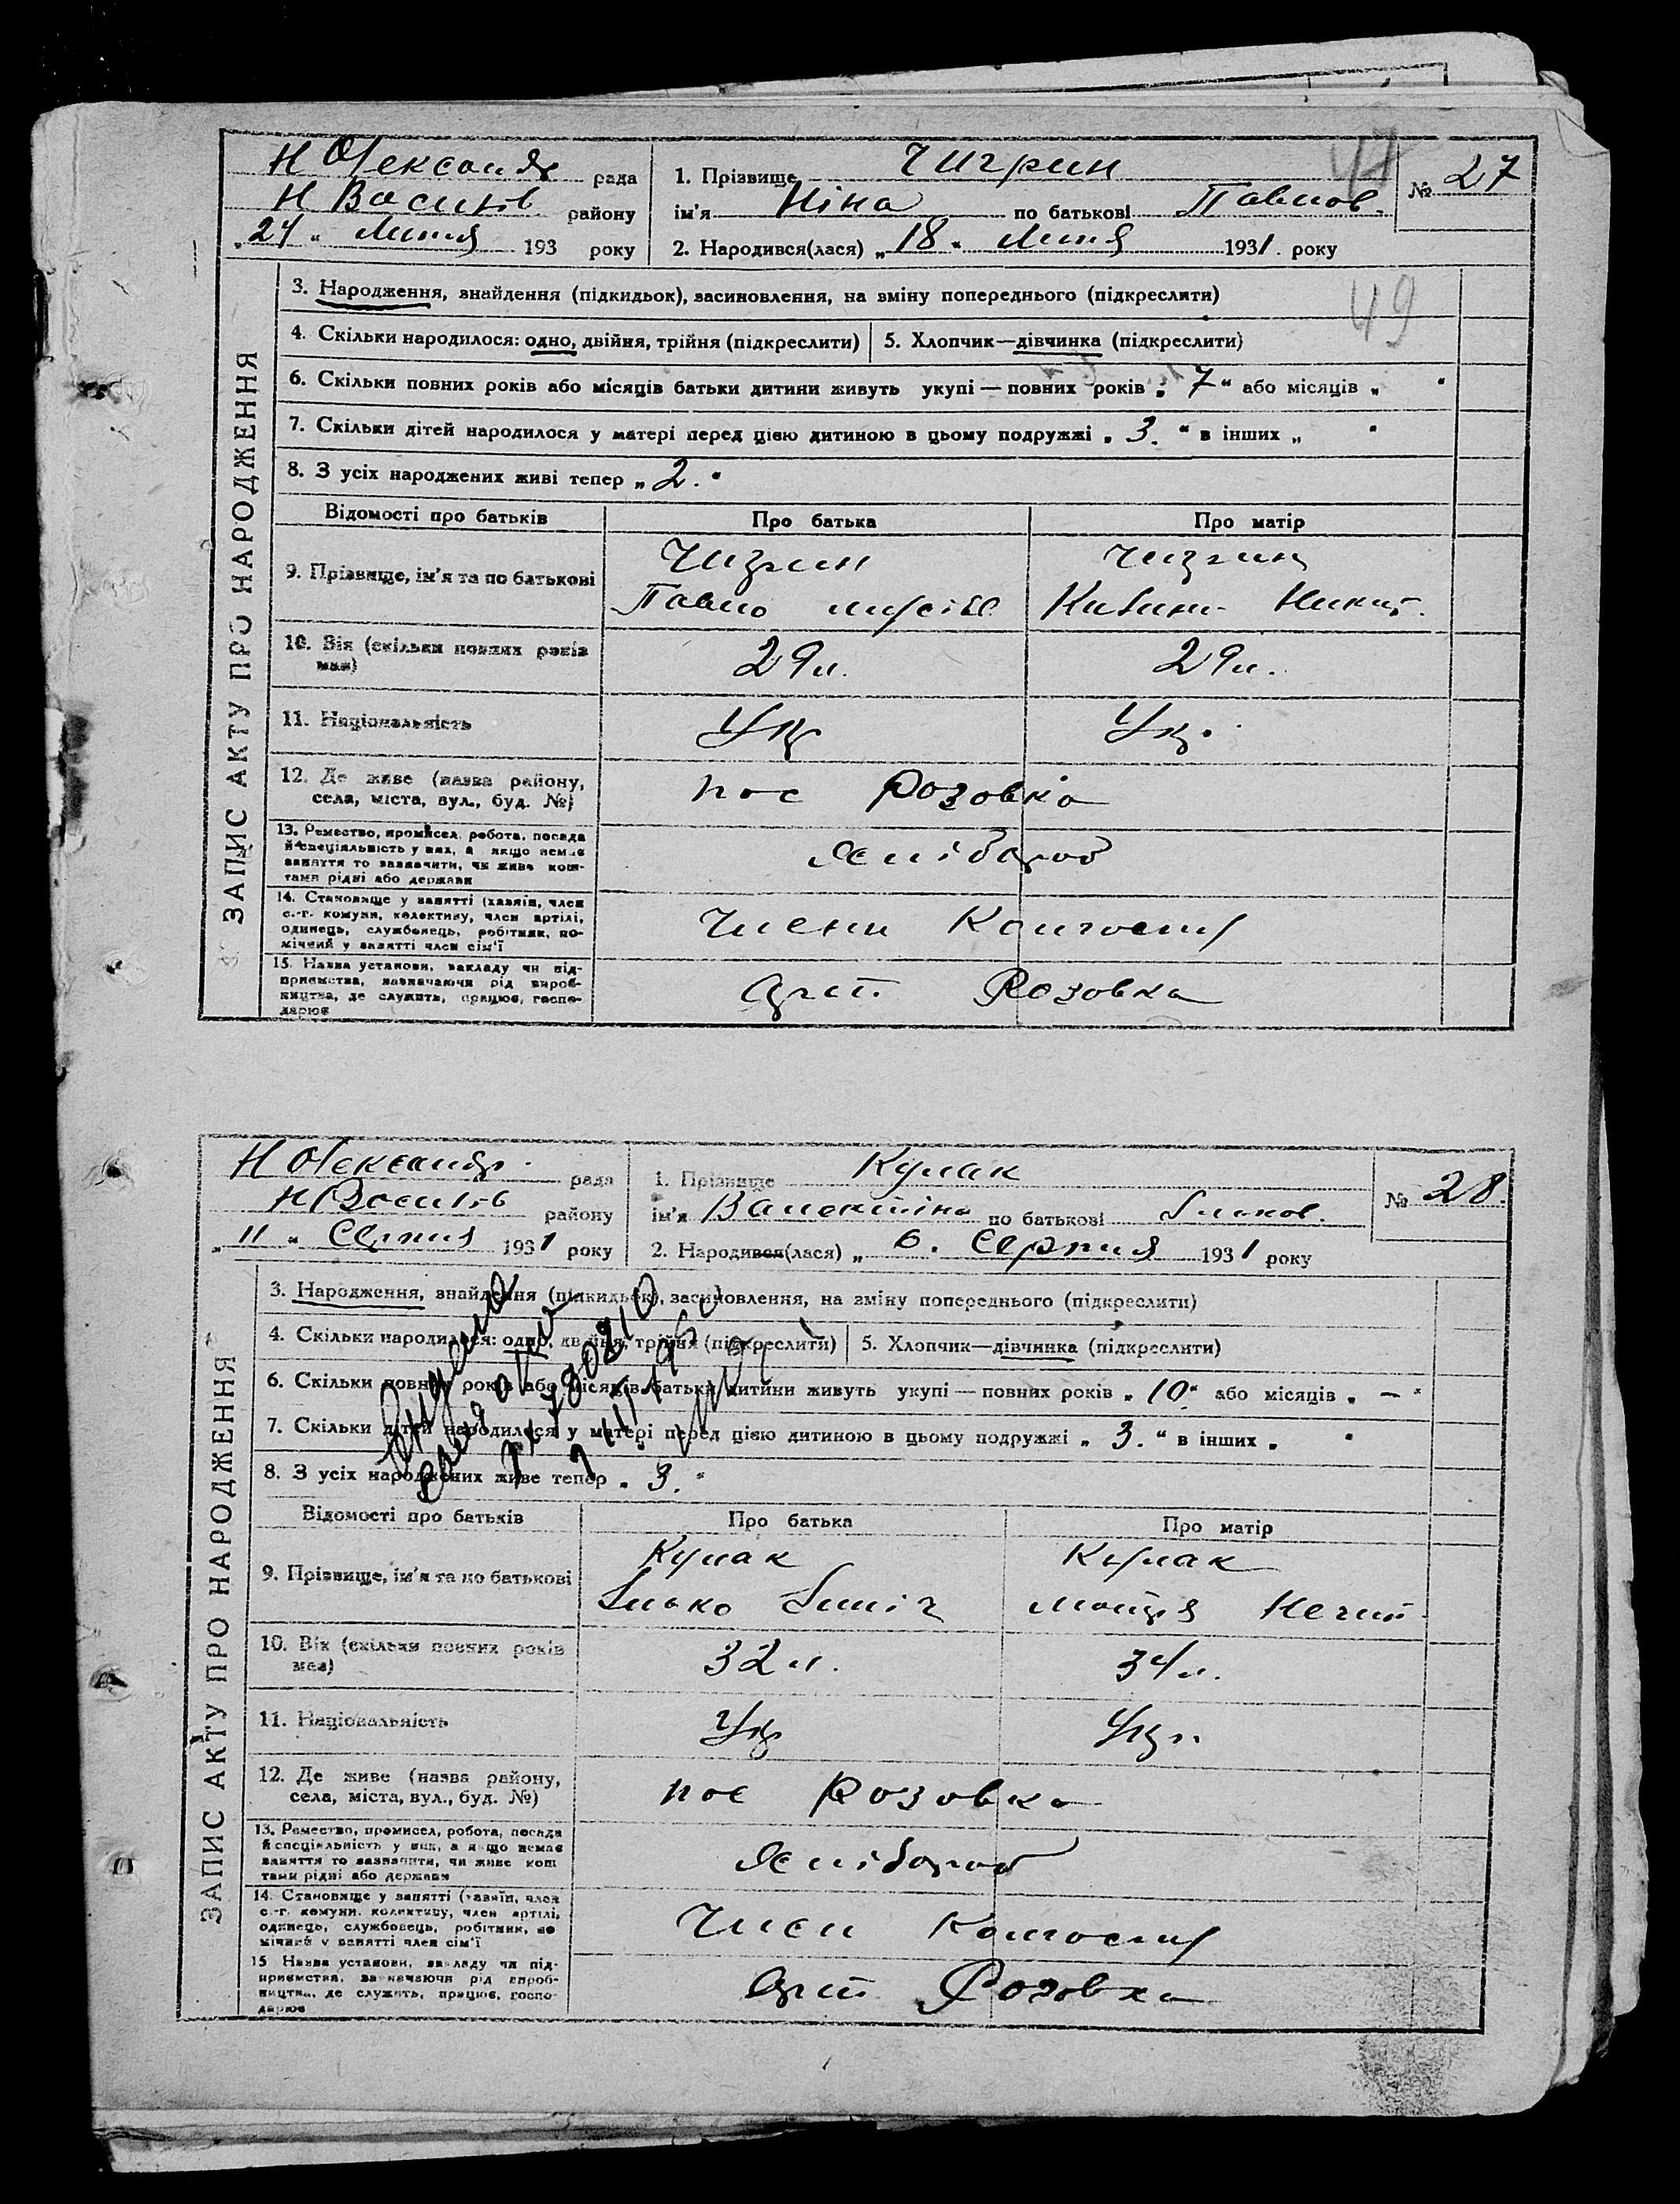 Н Олександр рада
Н Васил�ів району
"24" Липня 193 року
1. Прізвище Чигрин
ім'я Ніна по батькові Павлов.
2. Народився(лася) "18" Липня 1931. року
№ 27
47
49
ЗАПИС АКТУ ПРО НАРОДЖЕННЯ
3. Народження, знайдення (підкидьок), засиновлення, на зміну попереднього (підкреслити)
4. Скільки народилося: одно, двійня, трійня (підкреслити) 5. Хлопчик—дівчинка (підкреслити)
6. Скільки повних років або місяців батьки дитини живуть укупі — повних років „7“ або місяців „ “
7. Скільки дітей народилося у матері перед цією дитиною в цьому подружжі „3.“ в інших „ “
8. З усіх народжених живі тепер „2.“
Відомості про батьків Про батька Про матір
9. Прізвище, ім'я та по батькові
Чигрин Чигрин
Павло Никит.
10. Вік (скільки повних років має) 29 л. 29 л.
11. Національність Укр Укр.
12. Де живе (назва району, села, міста, вул., буд. №) пос Розовка
13. Ремество, промисел, робота, посада й спеціяльність у них, а якщо немає заняття то зазначити, чи живе коштами рідні або держави
Хлібороб
14. Становище у занятті (хазяїн, член с.-г. комуни, колективу, член артілі, одинець, службовець, робітник, помічний у занятті член сім'ї
Члени Колгоспу
15. Назва установи, закладу чи підприємства, зазначаючи рід виробництва, де служить, працює, господарює
Арт. Розовка
Н Олександр. рада
Н Василів району
"11" Серпня 1931 року
1. Прізвище Кулак
ім'я Валентина по батькові Ільков.
2. Народився(лася) „6. Серпня 1931 року
№ 28.
ЗАПИС АКТУ ПРО НАРОДЖЕННЯ
3. Народження, знайдення (підкидьок), засиновлення, на зміну попереднього (підкреслити)
4. Скільки народилося: одно, двійня, трійня (підкреслити) 5. Хлопчик—дівчинка (підкреслити)
6. Скільки повних років або місяців батьки дитини живуть укупі — повних років „10“ або місяців „—“
7. Скільки дітей народилося у матері перед цією дитиною в цьому подружжі „3.“ в інших „ “
8. З усіх народжених живе тепер „3.“
Відомості про батьків Про батька Про матір
9. Прізвище, ім'я та по батькові
Кулак Кулак
Ілько Ілліч
10. Вік (скільки повних років має) 32 л. 34 л.
11. Національність Укр Укр.
12. Де живе (назва району, села, міста, вул., буд. №) пос Розовка
13. Ремество, промисел, робота, посада й спеціяльність у них, а якщо немає заняття то зазначити, чи живе коштами рідні або держави
Хлібороб
14. Становище у занятті (хазяїн, член с.-г. комуни, колективу, член артілі, одинець, службовець, робітник, помічний у занятті член сім'ї
Член Колгоспу
15 Назва установи, закладу чи підприємства, зазначаючи рід виробництва, де служить, працює, господарює
Арт. Розовка